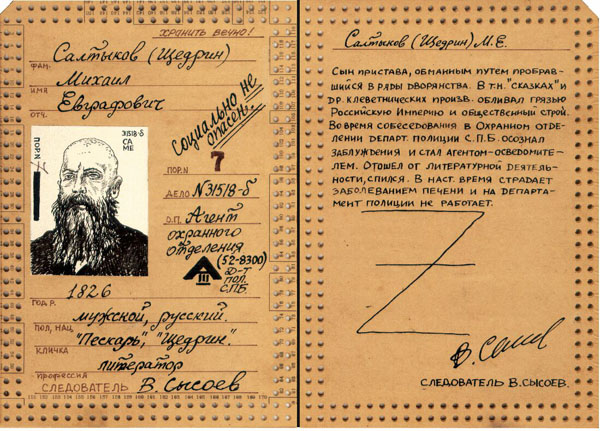 ХРАНИТЬ ВЕЧНО!
Салтыков (Щедрин)
ФАМ.
Михаил
ИМЯ
Евграфович
ОТЧ.
Социально не
опасен...
ПОР.N
31518-б
СА
МЕ
ПОР.N
7
ДЕЛО N31518-б
О.П. Агент
охранного
отделения
(52-8300)
Д-Т
ПОЛ.
С.П.Б.
1826
ГОД Р.
мужской, русский.
ПОЛ, НАЦ.
"Пескарь", "Щедрин".
КЛИЧКА
литератор
ПРОФЕССИЯ
СЛЕДОВАТЕЛЬ В. Сысоев
Салтыков (Щедрин) М.Е.
Сын пристава, обманным путем пробрав-
шийся в ряды дворянства. В т.н. "сказках" и
др. клеветнических произв. обливал грязью
Российскую Империю и общественный строй.
Во время собеседования в Охранном отде-
лении департ. полиции С.П.Б. осознал
заблуждения и стал агентом-осведомите-
лем. Отошел от литературной деятель-
ности, спился. В наст. время страдает
заболеванием печени и на департа-
мент полиции не работает.
СЛЕДОВАТЕЛЬ В.СЫСОЕВ.